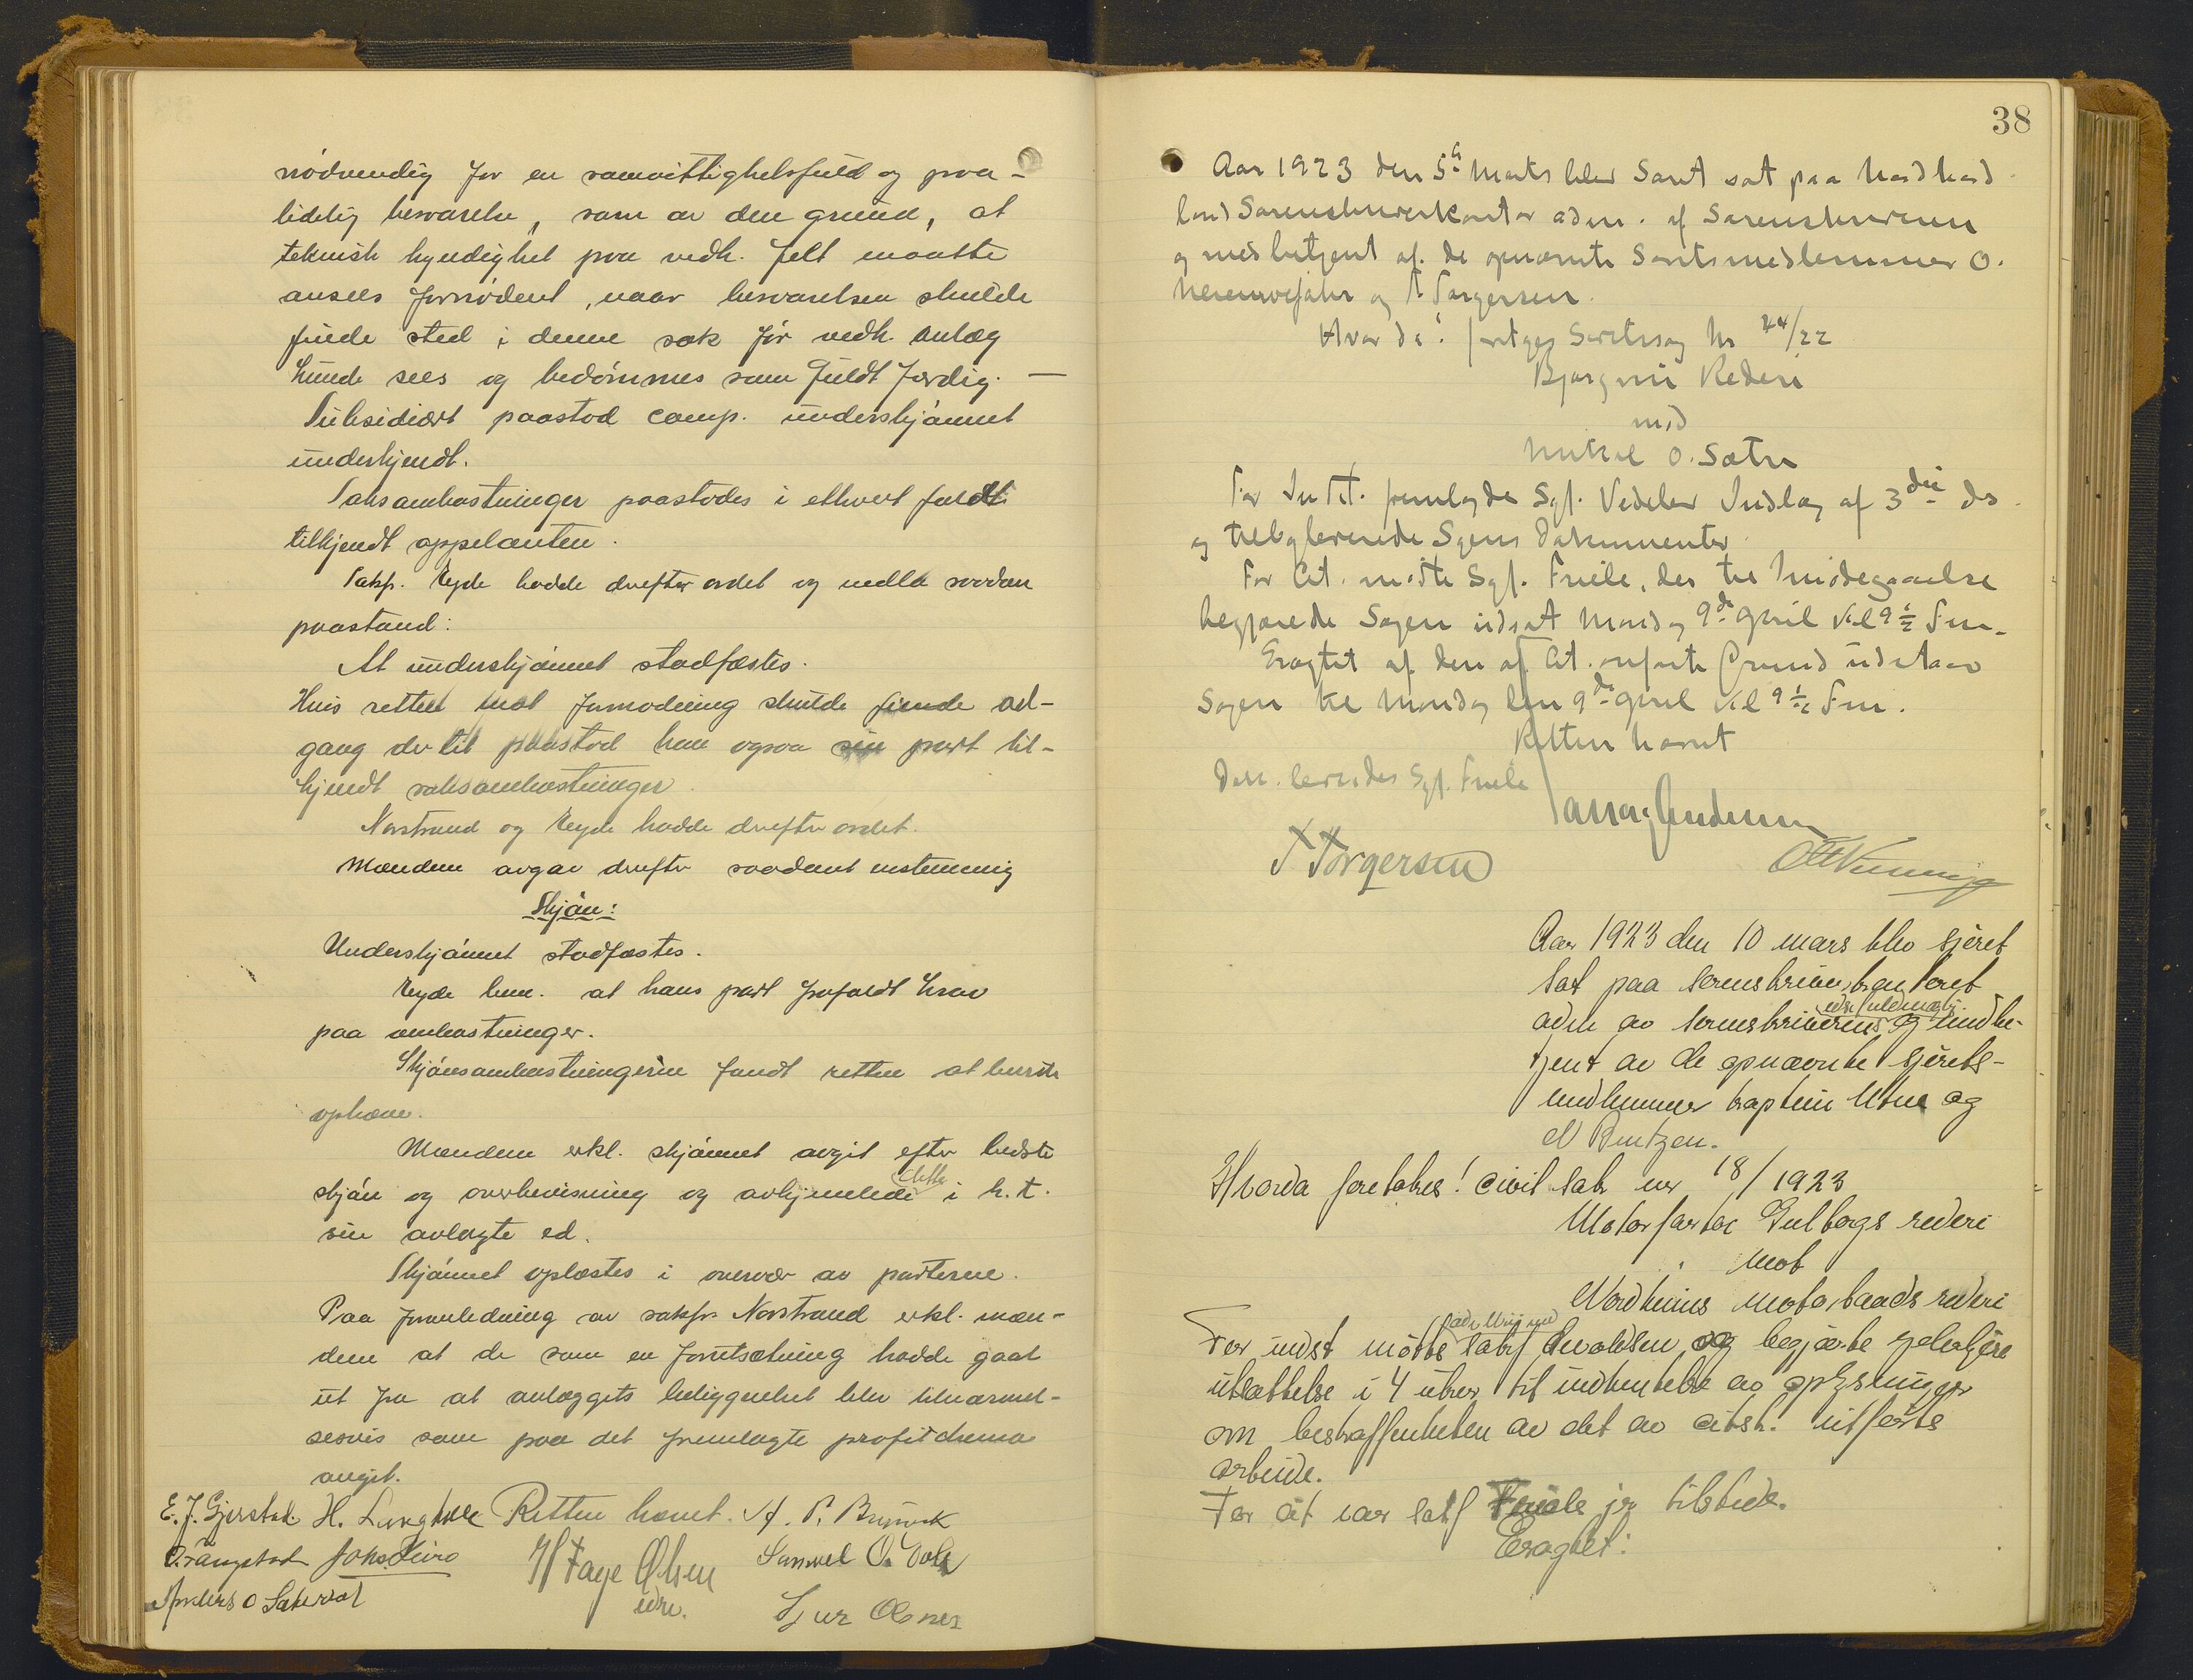 nödvendig for en samvittighetsfuld og paa-
lidelig besvarelse, som av den grund, at
teknisk kyndighet paa vedk. felt maatte
ansees fornödent, naar besvarelsen skulde
finde sted i denne sak för vedk. anlæg
kunde sees og bedömmes som fuldt færdig. —
Subsidiært paastod comp. underskjönnet
underkjendt.
Saksomkostninger paastodes i ethvert fald
tilkjendt appelanten.
Saksf. Eyde hadde derefter ordet og nedla saadan
paastand:
At underskjönnet stadfæstes.
Hvis retten mot formodning skulde finde ad-
gang dertil paastod han ogsaa sin part til-
kjendt saksomkostninger.
Norstrand og Eyde hadde derefter ordet.
Mændene avgav derefter saadant enstemmig
Skjön:
Underskjönnet stadfæstes.
Eyde bem. at hans part frafaldt krav
paa omkostninger.
Skjönsomkostningerne fandt retten at burde
ophæve.
Mændene erkl. skjönnet avgit efter bedste
skjön og overbevisning og avhjemlede dette i h. t.
sin avlagte ed.
Skjönnet oplæstes i overvær av parterne.
Paa foranledning av saksf. Norstrand erkl. mæn-
dene at de som en forutsætning hadde gaat
ut fra at anlæggets beliggenhet blev tilnærmel-
sesvis som paa det fremlagte profilschema
angit.
E. J. Gjerstad H. Retten hævet. A. P.
Johs
H Faye Olsen Samuel O.
edv.
Anders O Sjur Olsnes
38
Aar 1923 den 5te Marts blev Søret sat paa Nordhord
land Sorenskriverkontor adm. af Sorenskriveren
og medbetjent af de opnævnte Søretsmedlemmer O.
og T. Torgersen.
Hvor da: foretoges Søretssag No 44/22
Rederi
mod
O. Sætre
For Indst. fremlagde Sgf. Vedeler Indlæg af 3die ds
og tilbageleverede Sagens Dokumenter.
For Cit. mødte Sgf. Friele, der til Imødegaaelse
begjærede Sagen udsat Mandag 9de April Kl 9½ Fm.
Eragtet af den af Cit. anførte Grund udstaar
Sagen til Mandag den 9de April Kl 9½ Fm.
Retten hævet
Dok. leveredes Sgf. Friele
T Torgersen
Aar 1923 den 10 mars blev sjöret
sat paa sorenskriverkontoret
adm av sorenskriverens edsv. fuldmægtig og medbe-
tjent av de opnævnte sjörets-
medlemmer kaptein Utne og
N Bentzen.
Hvorda foretokes: civil sak nr 18/1923
Motorfartöi Gulbergs rederi
mot
Nordheims motorbaads rederi
For indst mötte sakf og begjærte
utsættelse i 4 uker til indhentelse av oplysninger
om beskaffenheten av det av citst. utförte
arbeide.
For cit var sakf Friele jr tilstede.
Eragtet: